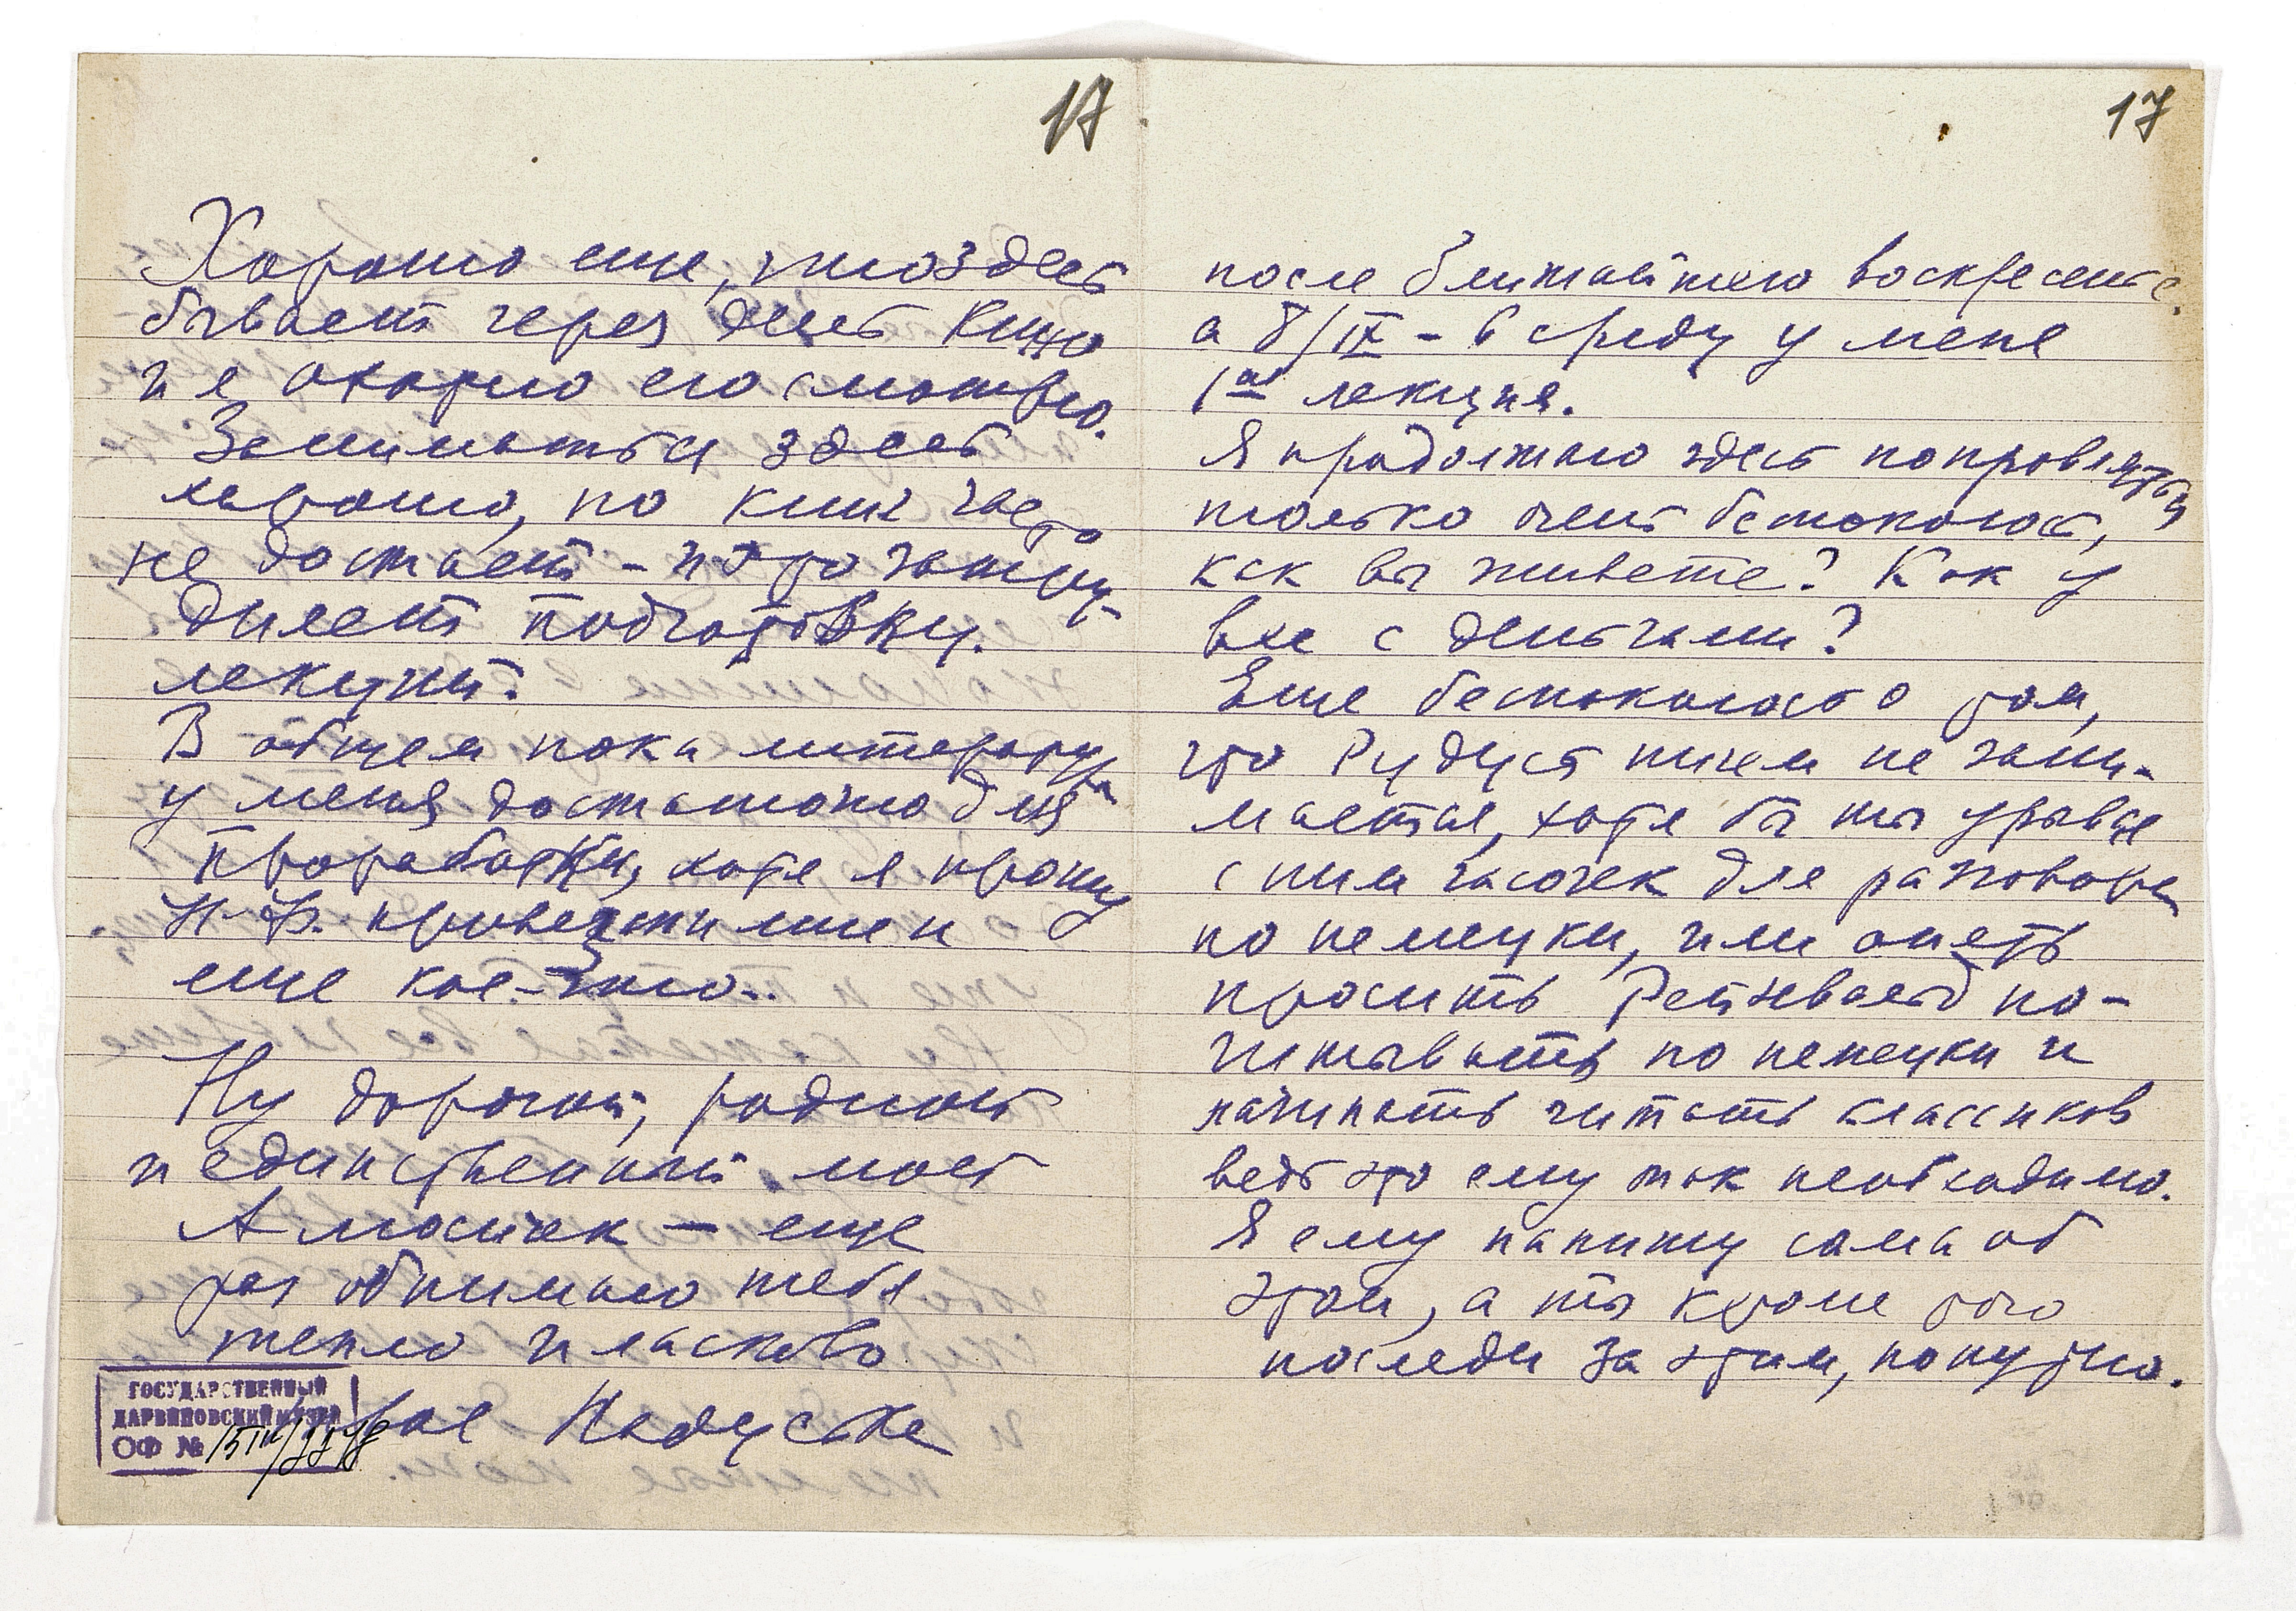 17
Хорошо еще, что здесь
бывает через день Кино
и я охотно его смотрю.
Заниматься здесь
хорошо, но книг часто
не достает - и это затру-
дняет подготовку
лекций.
В общем пока литературы
у меня достаточно для
проработки, хотя я прошу
привезти мне и
еще кое-что..
Ну дорогой, родной
и единственный мой
еще
раз обнимаю тебя
тепло и ласково
Надуся
ГОСУДАРСТВЕННЫЙ
ДАРВИНОВСКИЙ МУЗЕЙ
ОФ №
17
после ближайшего воскресенья.
а 8/IX - в среду у меня
1ая лекция.
Я продолжаю здесь поправляться
только очень беспокоюсь,
как вы живете? Как у
вас с деньгами?
Еще беспокоюсь о том,
что Рудусь ничем не зани-
мается, хотя бы ты урывал
с ним часочек для разговора
по немецки, или опять
просить по-
читывать по немецки и
начинать читать классиков
ведь это ему так необходимо.
Я ему напишу сама об
этом, а ты кроме того
последи за этим, попутно.